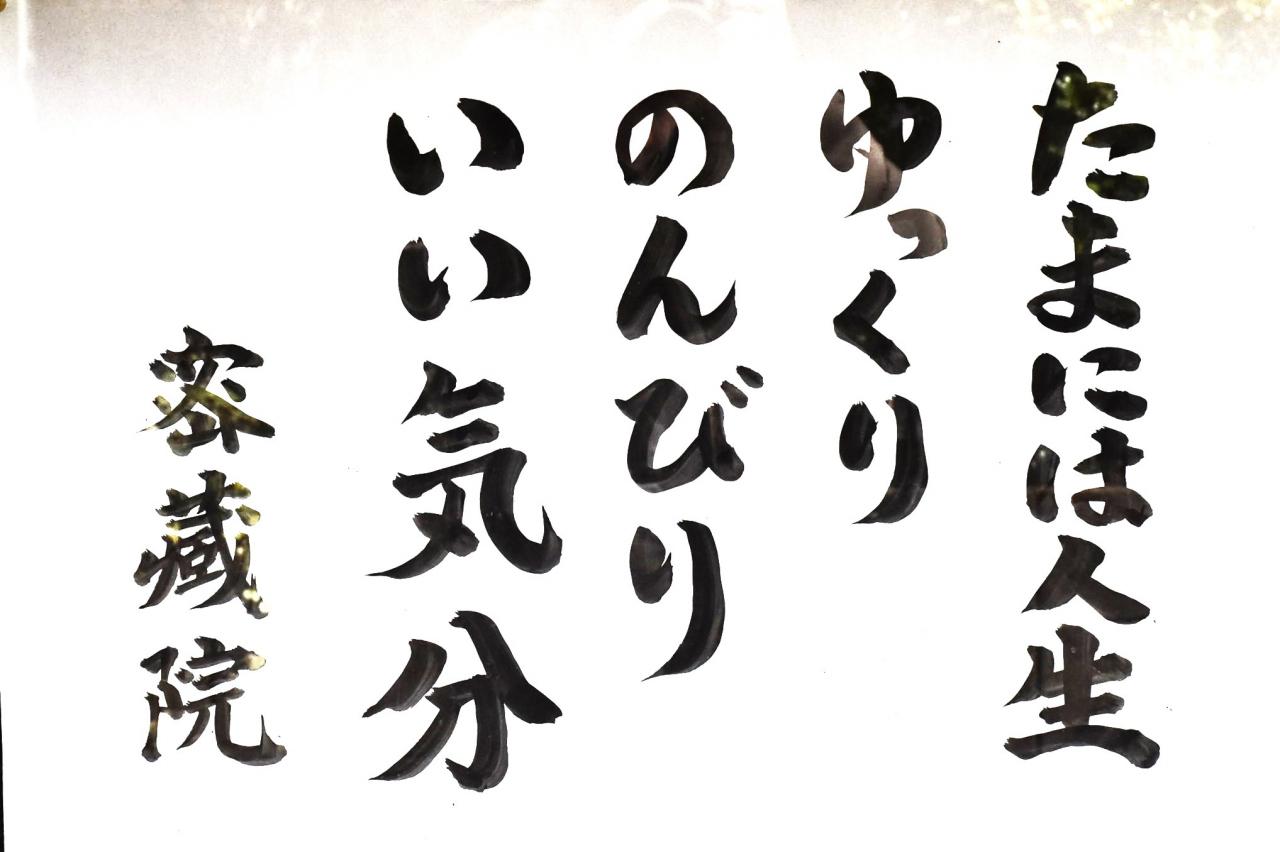 たまには人生
ゆっくり
のんびり
いい気分
密蔵院